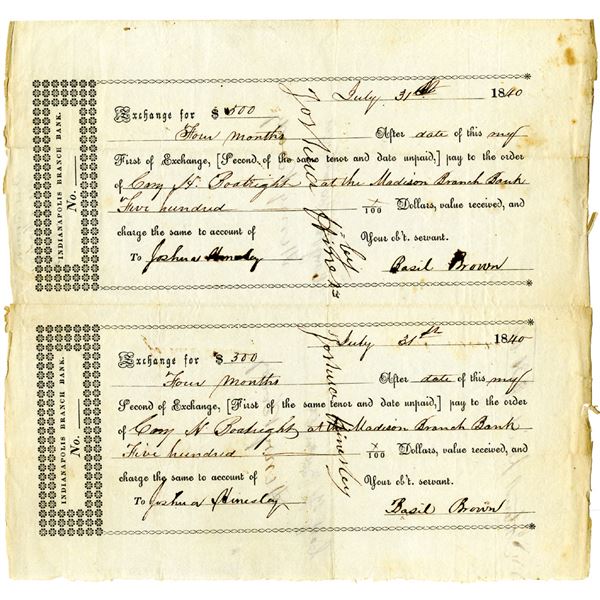 INDIANAPOLIS BRANCH BANK.
No.
July 31st 1840
Exchange for $ 500
Four months After date of this my
First of Exchange, [Second of the same tenor and date unpaid,] pay to the order
of Cary H. Boatright at the Madison Branch Bank
Five hundred x/100 Dollars, value received, and
charge the same to account of Your ob't. servant.
To Joshua Hinesley Basil Brown
Joshua
INDIANAPOLIS BRANCH BANK.
No.
July 31st 1840
Exchange for $ 300
Four Months After date of this my
Second of Exchange, [First of the same tenor and date unpaid,] pay to the order
of Cary H Boatright at the Madison Branch Bank
Five hundred x/100 Dollars, value received, and
charge the same to account of Your ob't. servant.
To Joshua Hinesley Basil Brown
Joshua Hinesley